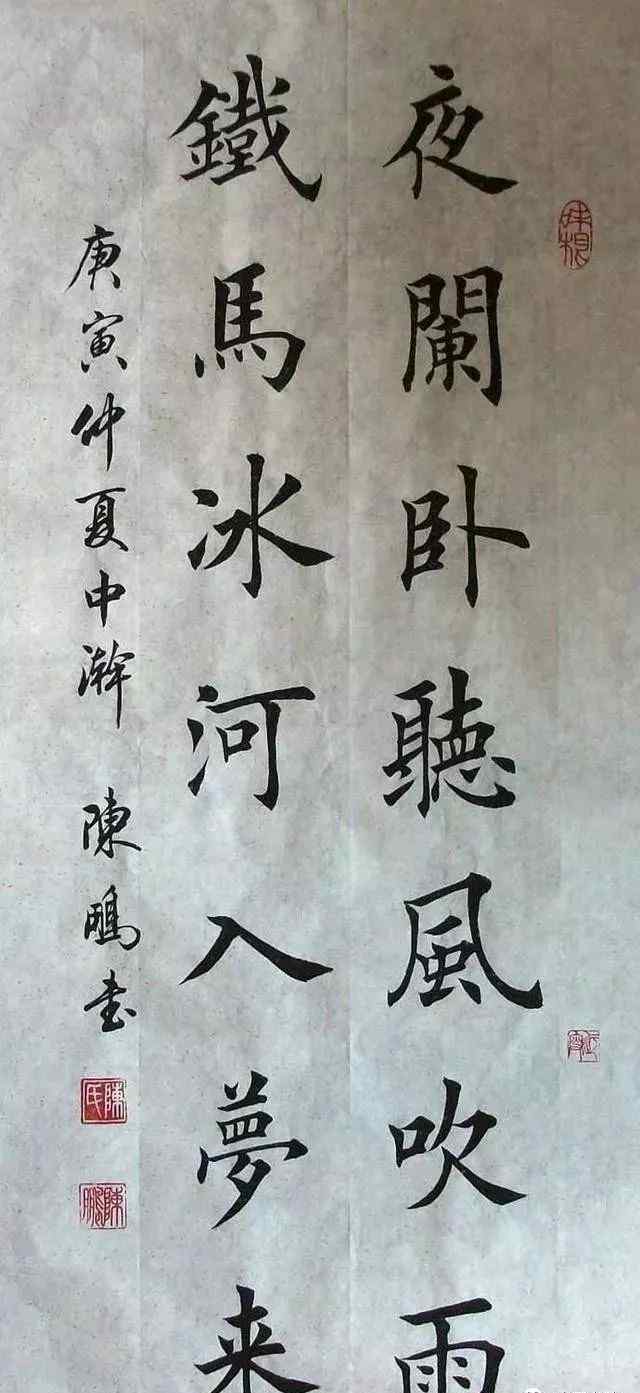 夜闌卧聽風吹雨
鐵馬冰河入夢来
庚寅仲夏中澣 陳鵬书
陳氏
陳鵬